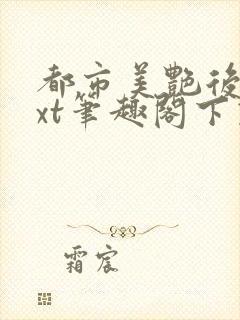 都市美艷後
xt筆趣閣下
霜宸